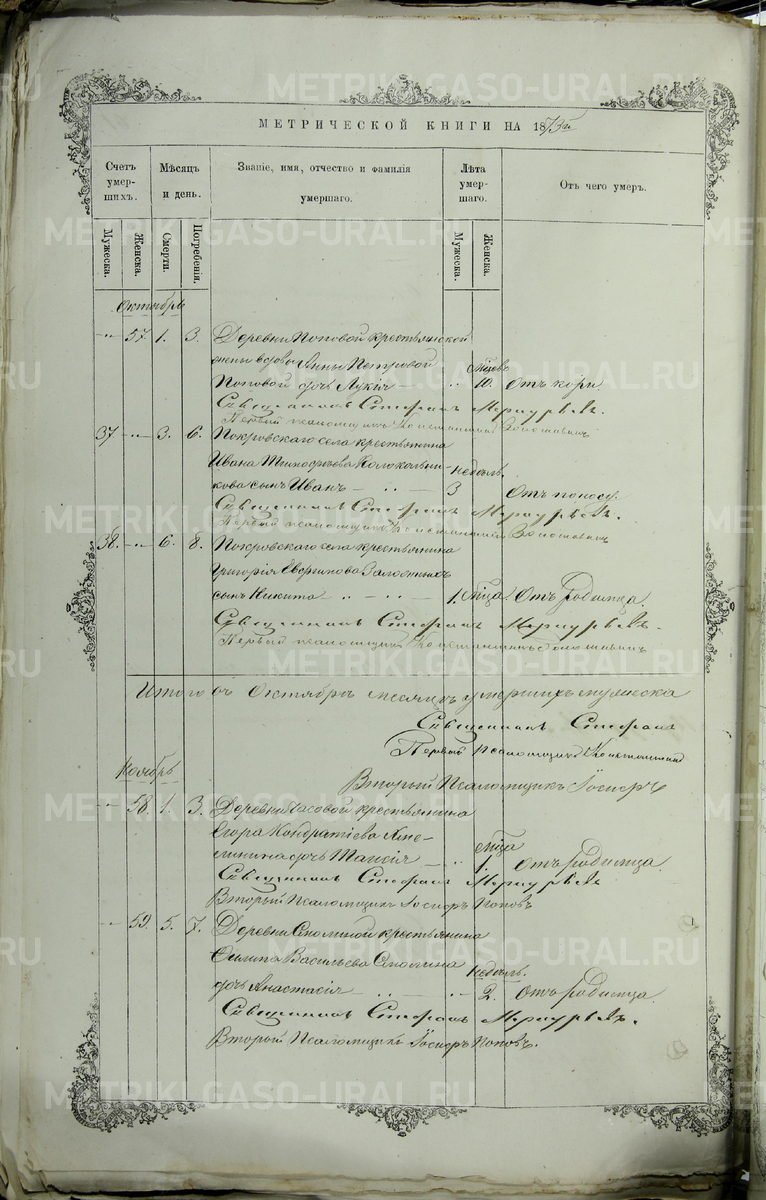 МЕТРИЧЕСКОЙ КНИГИ НА 1873й
Счетъ умер-шихъ.
Мѣсяцъ и день.
Званіе, имя, отчество и фамилія умершаго.
Лѣта умер-шаго.
Отъ чего умеръ.
Мужеска.
Женска.
Смерти.
Погребенія.
Мужеска.
Женска.
Октябрь
57. 1. 3. Деревни Поповой крестьянской
жены вдовы Анны Петровой
Поповой дочь Лукія 10. Отъ кори
Священникъ Стефанъ Меркурьевъ.
Первый псаломщикъ Константинъ
37 3. 6. Покровскаго села крестьянина
Ивана Тимофѣева Колокольни-
кова сынъ Иванъ недѣль. 3 Отъ поносу.
Священникъ Стефанъ Меркурьевъ.
Первый псаломщикъ Константинъ
38. 6. 8. Покровскаго села крестьянина
Григорія
сынъ Никита 1. мѣсца Отъ родимца.
Священникъ Стефанъ Меркурьевъ.
Первый псаломщикъ Константинъ
Итого въ Октябрѣ месяцѣ умершихъ мужеска
Священникъ Стефанъ
Первый Псаломщикъ Константинъ
Второй Псаломщикъ Іосифъ
Ноябрь
58. 1. 3. Деревни Часовой крестьянина
Егора Кондратіева
дочь Таисія мѣсца 1. Отъ родимца.
Священникъ Стефанъ Меркурьевъ
Вторый Псаломщикъ Іосифъ Поповъ
59. 5. 7. Деревни крестьянина
Филипа Васильева
дочь Анастасія недѣль. 2. Отъ родимца.
Священникъ Стефанъ Меркурьевъ.
Вторый Псаломщикъ Іосифъ Поповъ.
METRIKI.GASO-URAL.RU